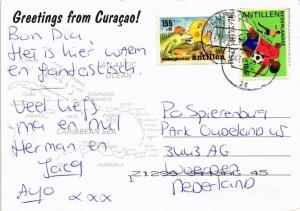 Greetings from Curaçao!
Bon Dia,
Het is hier warm
en fantastisch.
Veel liefs
ma en
Herman en
Jacq
Ayo xxx
155
Antillen
ANTILLEN
NEDERLANDSE
ATLANTIC
OCEAN
CARIBBEAN SEA
VENEZUELA
Pa Spierenburg
Park Oudeland
3443 AG
Woerden
Nederland